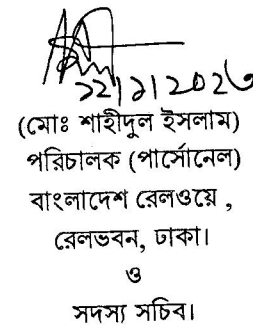 (মোঃ শাহীদুল ইসলাম)
পরিচালক (পার্সোনেল)
বাংলাদেশ রেলওয়ে ,
রেলভবন, ঢাকা।
ও
সদস্য সচিব।